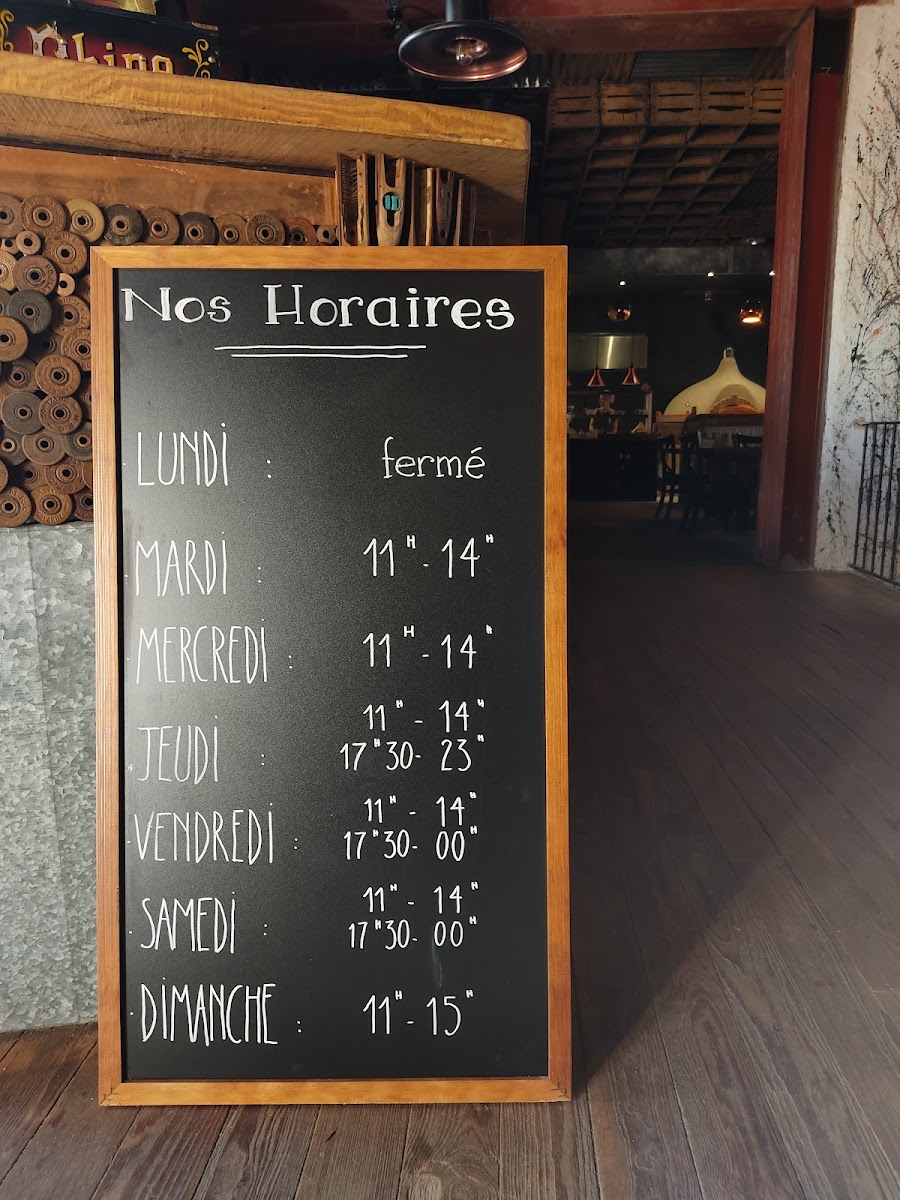 Nos Horaires
LUNDI : fermé
MARDI : 11H - 14H
MERCREDI : 11H - 14H
11H - 14H
JEUDI : 17H30 - 23H
11H - 14H
VENDREDI : 17H30 - 00H
11H - 14H
SAMEDI : 17H30 - 00H
DIMANCHE : 11H - 15H